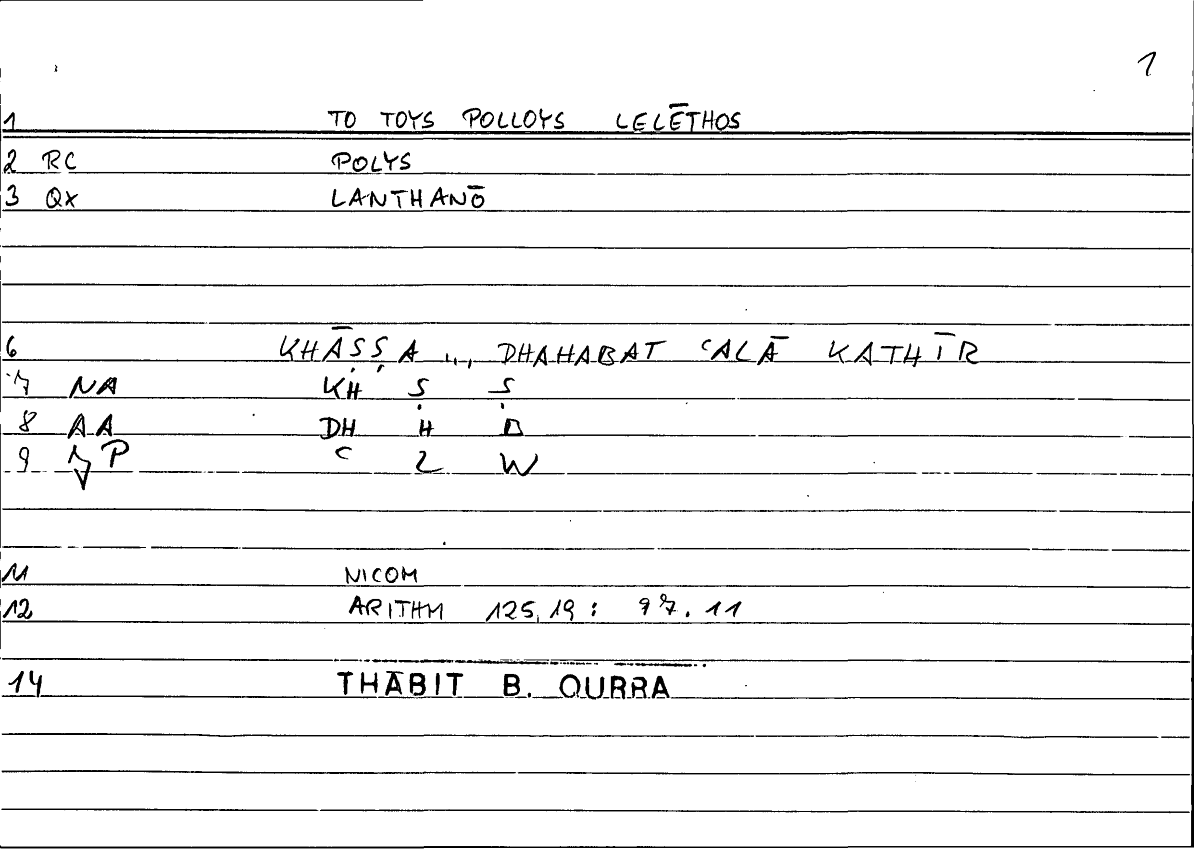 1
1 TO TOYS POLLOYS LELĒTHOS
2 RC POLYS
3 QX LANTHANŌ
6 KHĀṢṢA ... DHAHABAT ʿALĀ KATHĪR
7 NA KH Ṣ Ṣ
8 AA DH H B
9 P ʿ L W
11 NICOM
12 ARITHM 125,19 : 97.11
14 THĀBIT B. QURRA